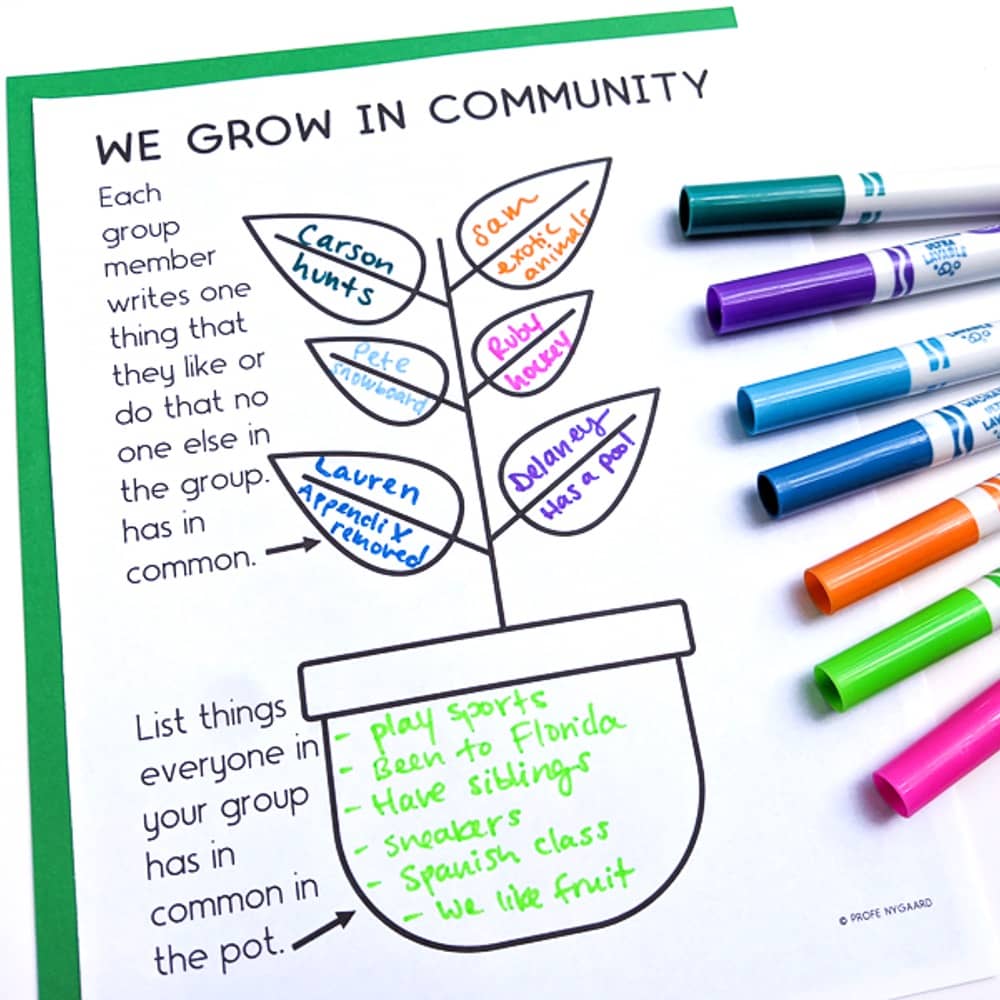 WE GROW IN COMMUNITY
Each
group
member
writes one
thing that
they like or
do that no
one else in
the group.
has in
common.
Carson
hunts
Sam
exotic
animals
Pete
snowboard
Ruby
hockey
Lauren
Appendix
removed
Delaney
Has a pool
List things
everyone in
your group
has in
common in
the pot.
- play sports
- Been to Florida
- Have siblings
- sneakers
- Spanish class
- We like fruit
© PROFE NYGAARD
ULTRA